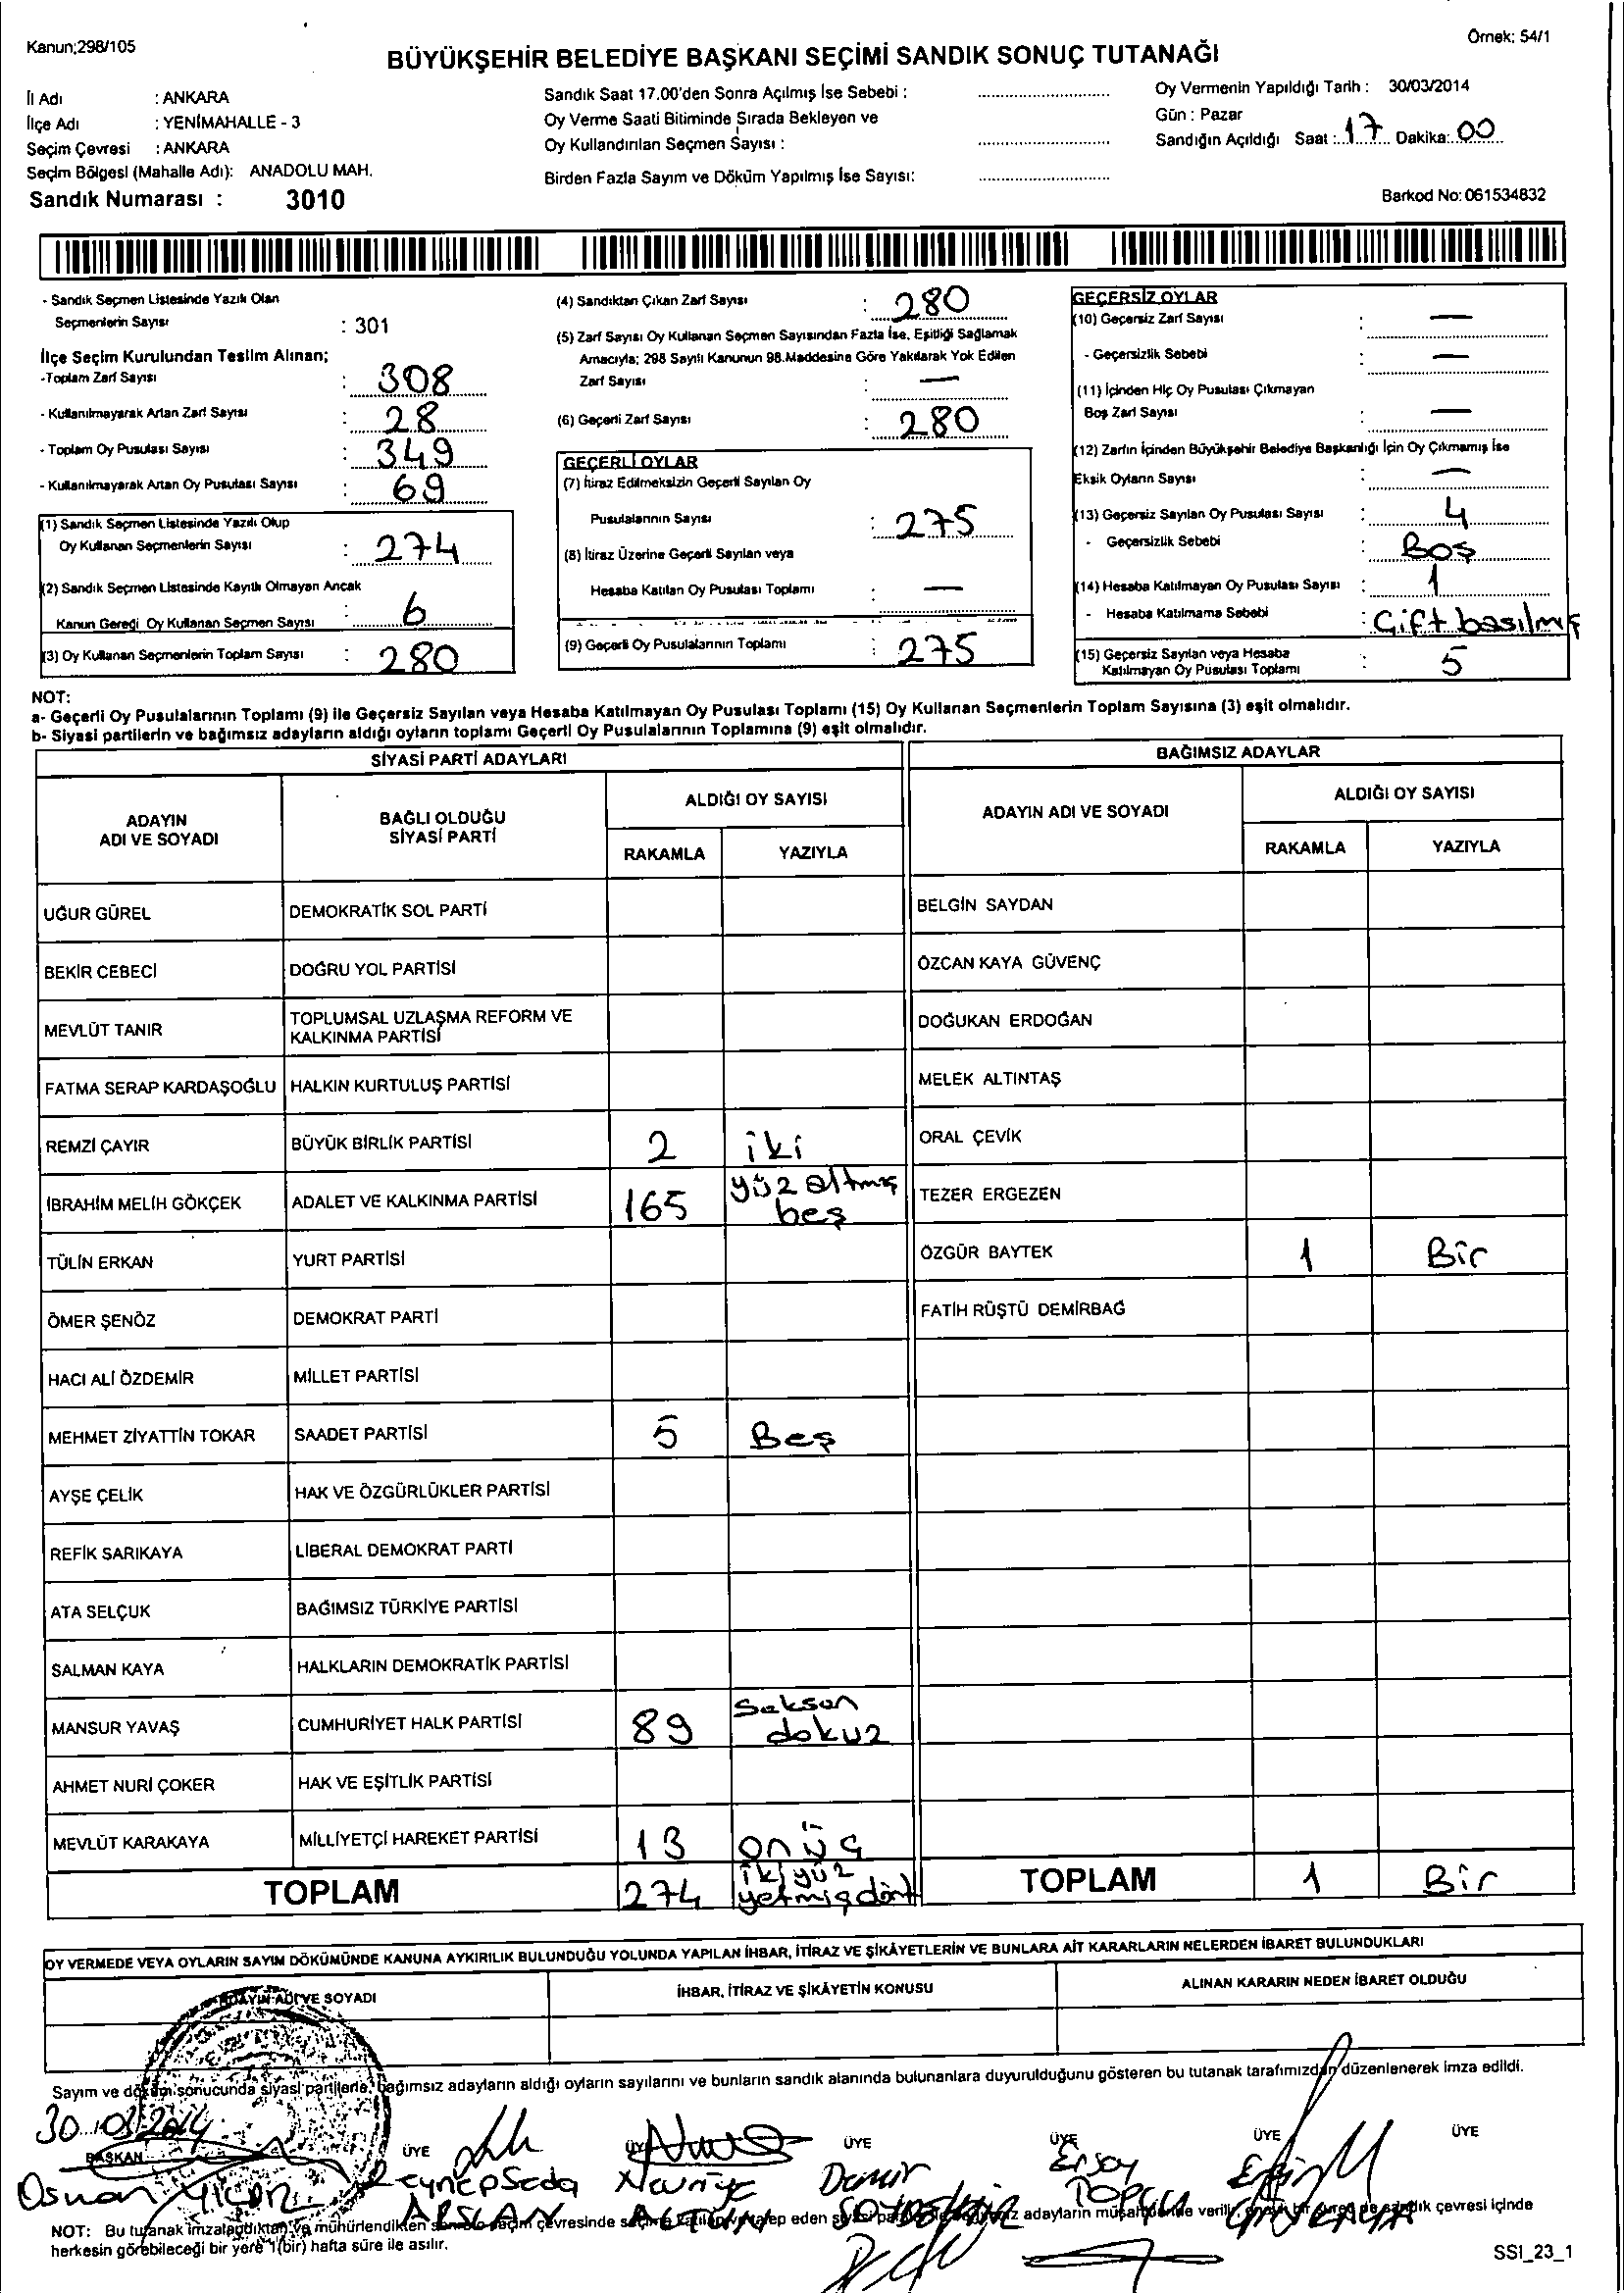 Kanun;298/105
Örnek: 54/1
BÜYÜKŞEHİR BELEDİYE BAŞKANI SEÇİMİ SANDIK SONUÇ TUTANAĞI
İl Adı : ANKARA
İlçe Adı : YENİMAHALLE - 3
Seçim Çevresi : ANKARA
Seçim Bölgesi (Mahalle Adı): ANADOLU MAH.
Sandık Numarası : 3010
Sandık Saat 17.00'den Sonra Açılmış İse Sebebi :
Oy Verme Saati Bitiminde Sırada Bekleyen ve
Oy Kullandırılan Seçmen Sayısı :
Birden Fazla Sayım ve Döküm Yapılmış İse Sayısı:
Oy Vermenin Yapıldığı Tarih : 30/03/2014
Gün : Pazar
Sandığın Açıldığı Saat : 17 Dakika: 00
Barkod No: 061534832
- Sandık Seçmen Listesinde Yazılı Olan
Seçmenlerin Sayısı : 301
İlçe Seçim Kurulundan Teslim Alınan;
-Toplam Zarf Sayısı : 308
- Kullanılmayarak Artan Zarf Sayısı : 28
- Toplam Oy Pusulası Sayısı : 349
- Kullanılmayarak Artan Oy Pusulası Sayısı : 69
(1) Sandık Seçmen Listesinde Yazılı Olup
Oy Kullanan Seçmenlerin Sayısı : 274
(2) Sandık Seçmen Listesinde Kayıtlı Olmayan Ancak
Kanun Gereği Oy Kullanan Seçmen Sayısı : 6
(3) Oy Kullanan Seçmenlerin Toplam Sayısı : 280
(4) Sandıktan Çıkan Zarf Sayısı : 280
(5) Zarf Sayısı Oy Kullanan Seçmen Sayısından Fazla İse, Eşitliği Sağlamak
Amacıyla; 298 Sayılı Kanunun 98.Maddesine Göre Yakılarak Yok Edilen
Zarf Sayısı : —
(6) Geçerli Zarf Sayısı : 280
GEÇERLİ OYLAR
(7) İtiraz Edilmeksizin Geçerli Sayılan Oy
Pusulalarının Sayısı : 275
(8) İtiraz Üzerine Geçerli Sayılan veya
Hesaba Katılan Oy Pusulası Toplamı : —
(9) Geçerli Oy Pusulalarının Toplamı : 275
GEÇERSİZ OYLAR
(10) Geçersiz Zarf Sayısı : —
- Geçersizlik Sebebi : —
(11) İçinden Hiç Oy Pusulası Çıkmayan
Boş Zarf Sayısı : —
(12) Zarfın İçinden Büyükşehir Belediye Başkanlığı İçin Oy Çıkmamış İse
Eksik Oyların Sayısı : —
(13) Geçersiz Sayılan Oy Pusulası Sayısı : 4
- Geçersizlik Sebebi : Boş
(14) Hesaba Katılmayan Oy Pusulası Sayısı : 1
- Hesaba Katılmama Sebebi : Çift basılmış
(15) Geçersiz Sayılan veya Hesaba
Katılmayan Oy Pusulası Toplamı : 5
NOT:
a- Geçerli Oy Pusulalarının Toplamı (9) ile Geçersiz Sayılan veya Hesaba Katılmayan Oy Pusulası Toplamı (15) Oy Kullanan Seçmenlerin Toplam Sayısına (3) eşit olmalıdır.
b- Siyasi partilerin ve bağımsız adayların aldığı oyların toplamı Geçerli Oy Pusulalarının Toplamına (9) eşit olmalıdır.
SİYASİ PARTİ ADAYLARI
ADAYIN ADI VE SOYADI
BAĞLI OLDUĞU SİYASİ PARTİ
ALDIĞI OY SAYISI
RAKAMLA YAZIYLA
UĞUR GÜREL DEMOKRATİK SOL PARTİ
BEKİR CEBECİ DOĞRU YOL PARTİSİ
MEVLÜT TANIR TOPLUMSAL UZLAŞMA REFORM VE
KALKINMA PARTİSİ
FATMA SERAP KARDAŞOĞLU HALKIN KURTULUŞ PARTİSİ
REMZİ ÇAYIR BÜYÜK BİRLİK PARTİSİ 2 iki
İBRAHİM MELİH GÖKÇEK ADALET VE KALKINMA PARTİSİ 165 yüz altmış beş
TÜLİN ERKAN YURT PARTİSİ
ÖMER ŞENÖZ DEMOKRAT PARTİ
HACI ALİ ÖZDEMİR MİLLET PARTİSİ
MEHMET ZİYATTİN TOKAR SAADET PARTİSİ 5 Beş
AYŞE ÇELİK HAK VE ÖZGÜRLÜKLER PARTİSİ
REFİK SARIKAYA LİBERAL DEMOKRAT PARTİ
ATA SELÇUK BAĞIMSIZ TÜRKİYE PARTİSİ
SALMAN KAYA HALKLARIN DEMOKRATİK PARTİSİ
MANSUR YAVAŞ CUMHURİYET HALK PARTİSİ 89 Seksen dokuz
AHMET NURİ ÇOKER HAK VE EŞİTLİK PARTİSİ
MEVLÜT KARAKAYA MİLLİYETÇİ HAREKET PARTİSİ 13 onüç
TOPLAM 274 ikiyüz yetmiş dört
BAĞIMSIZ ADAYLAR
ADAYIN ADI VE SOYADI
ALDIĞI OY SAYISI
RAKAMLA YAZIYLA
BELGİN SAYDAN
ÖZCAN KAYA GÜVENÇ
DOĞUKAN ERDOĞAN
MELEK ALTINTAŞ
ORAL ÇEVİK
TEZER ERGEZEN
ÖZGÜR BAYTEK 1 Bir
FATİH RÜŞTÜ DEMİRBAĞ
TOPLAM 1 Bir
OY VERMEDE VEYA OYLARIN SAYIM DÖKÜMÜNDE KANUNA AYKIRILIK BULUNDUĞU YOLUNDA YAPILAN İHBAR, İTİRAZ VE ŞİKÂYETLERİN VE BUNLARA AİT KARARLARIN NELERDEN İBARET BULUNDUKLARI
ADAYIN ADI VE SOYADI
İHBAR, İTİRAZ VE ŞİKÂYETİN KONUSU
ALINAN KARARIN NEDEN İBARET OLDUĞU
Sayım ve döküm sonucunda siyasi partilerle, bağımsız adayların aldığı oyların sayılarını ve bunların sandık alanında bulunanlara duyurulduğunu gösteren bu tutanak tarafımızdan düzenlenerek imza edildi.
30.03.2014
BAŞKAN ÜYE ÜYE ÜYE ÜYE ÜYE ÜYE
Osman
Zeynep Seda ARSLAN
Nevriye
Demir
Ersoy TOPÇU
NOT: Bu tutanak imzalandıktan ve mühürlendikten sonra seçim çevresinde seçime katılan ve talep eden siyasi parti adayların müşahitlerine verilir, sandık çevresi içinde
herkesin görebileceği bir yere 1(bir) hafta süre ile asılır.
SSI_23_1